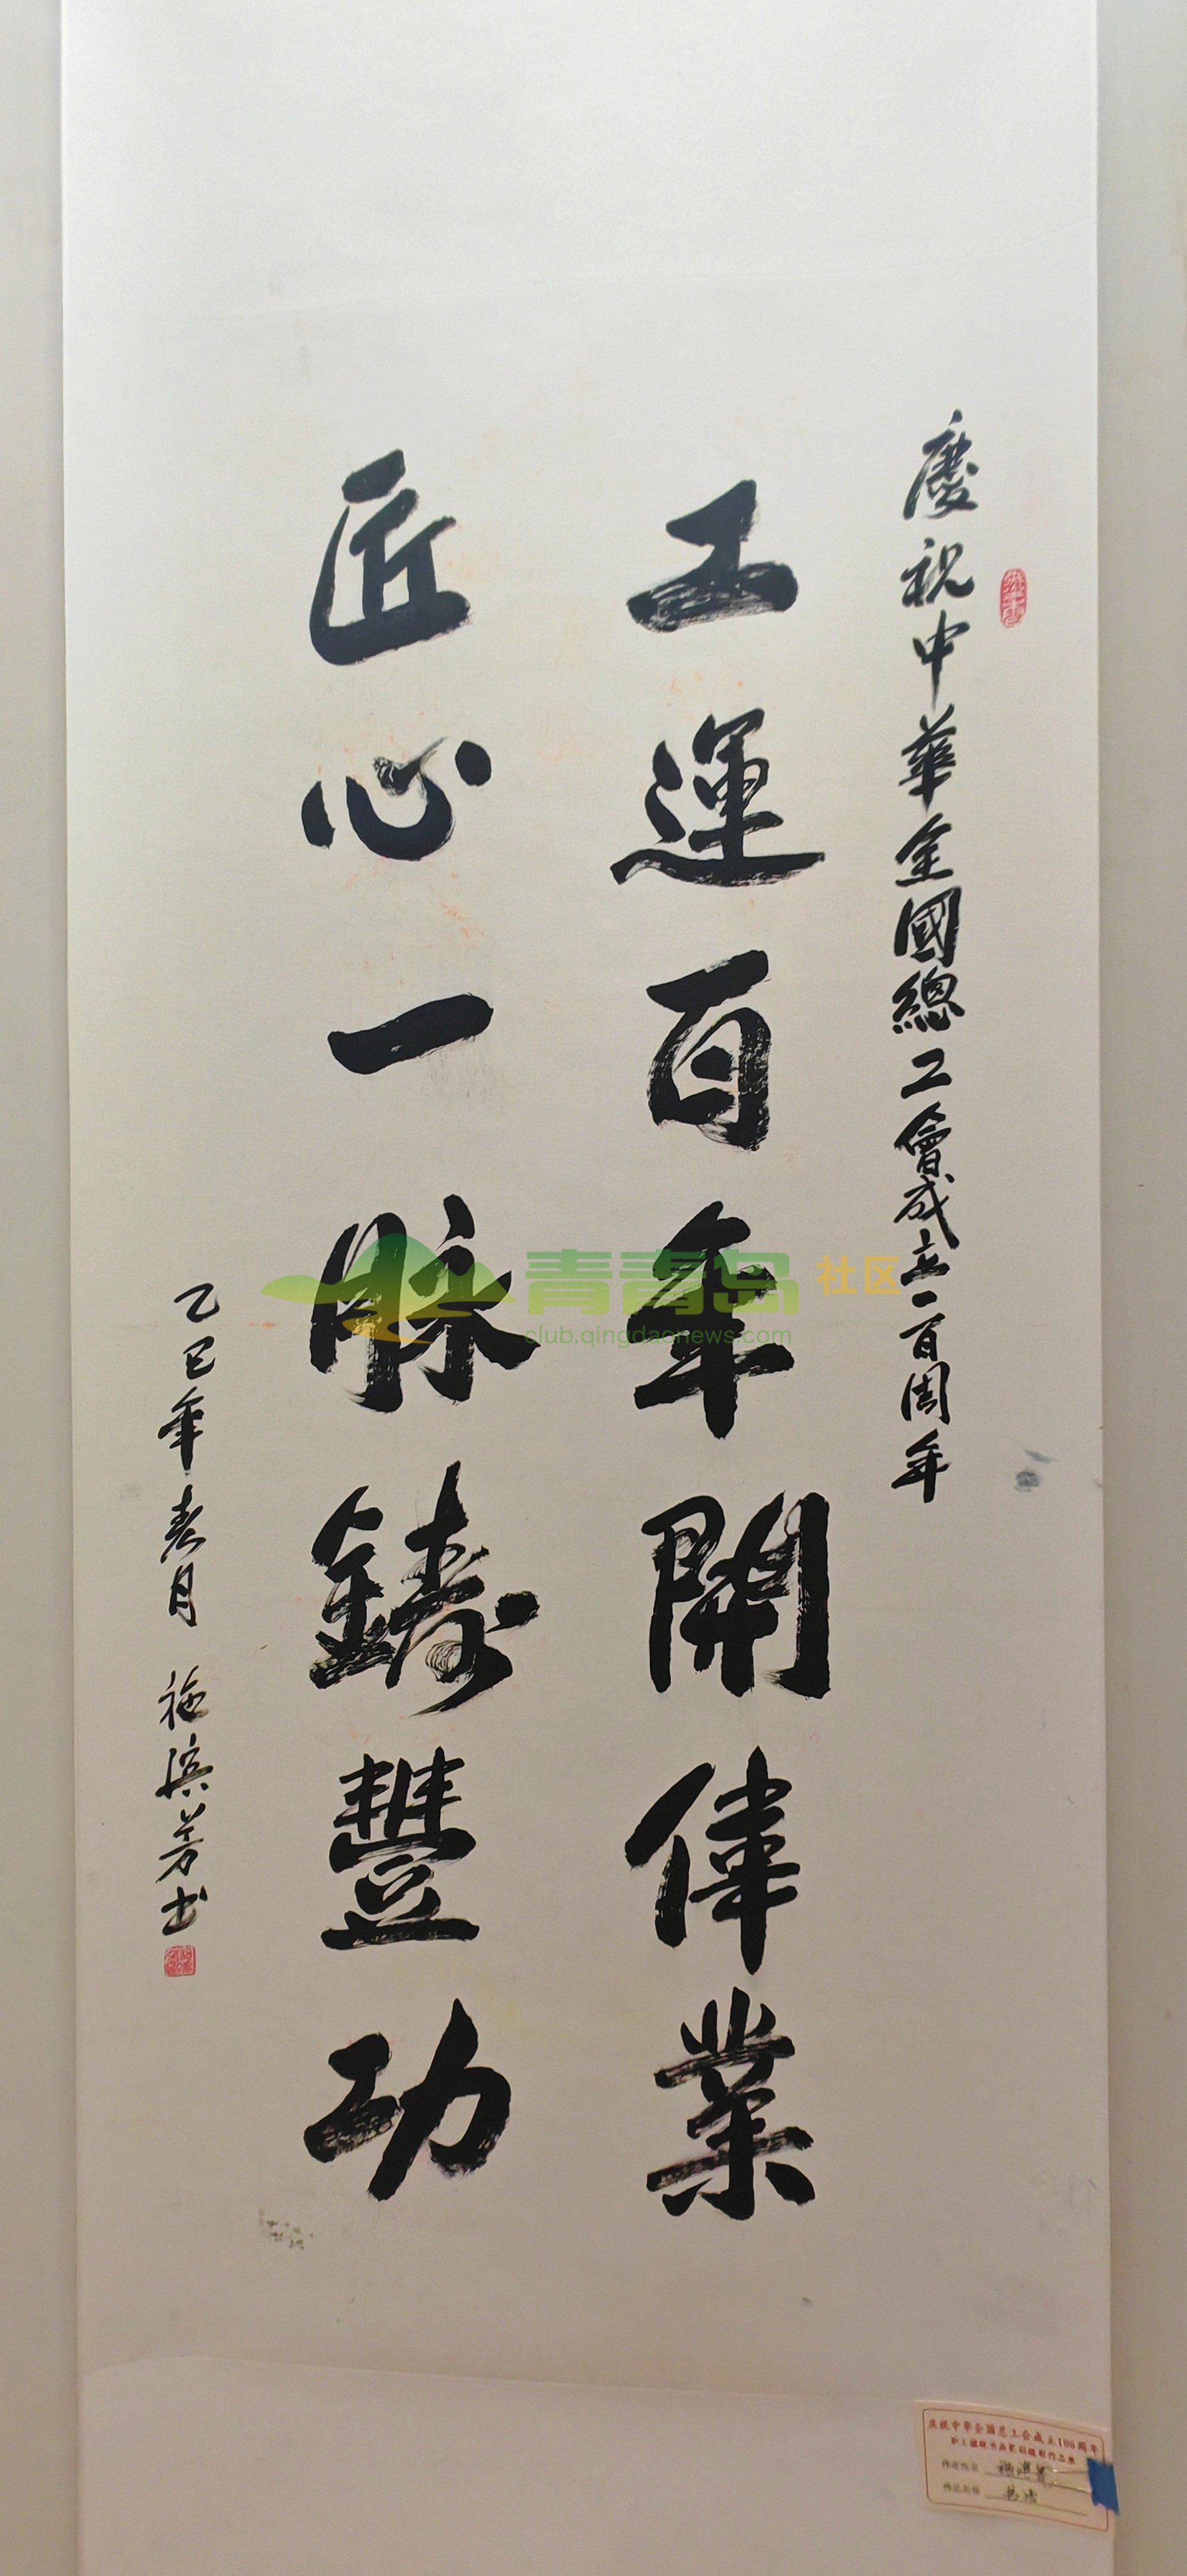 慶祝中華全國總工會成立一百周年
工運百年開偉業
匠心一脉鑄豐功
乙巳年春月 施濱芳书
青青岛 社区
club.qingdaonews.com
庆祝中华全国总工会成立100周年
作者姓名
作品名称 书法